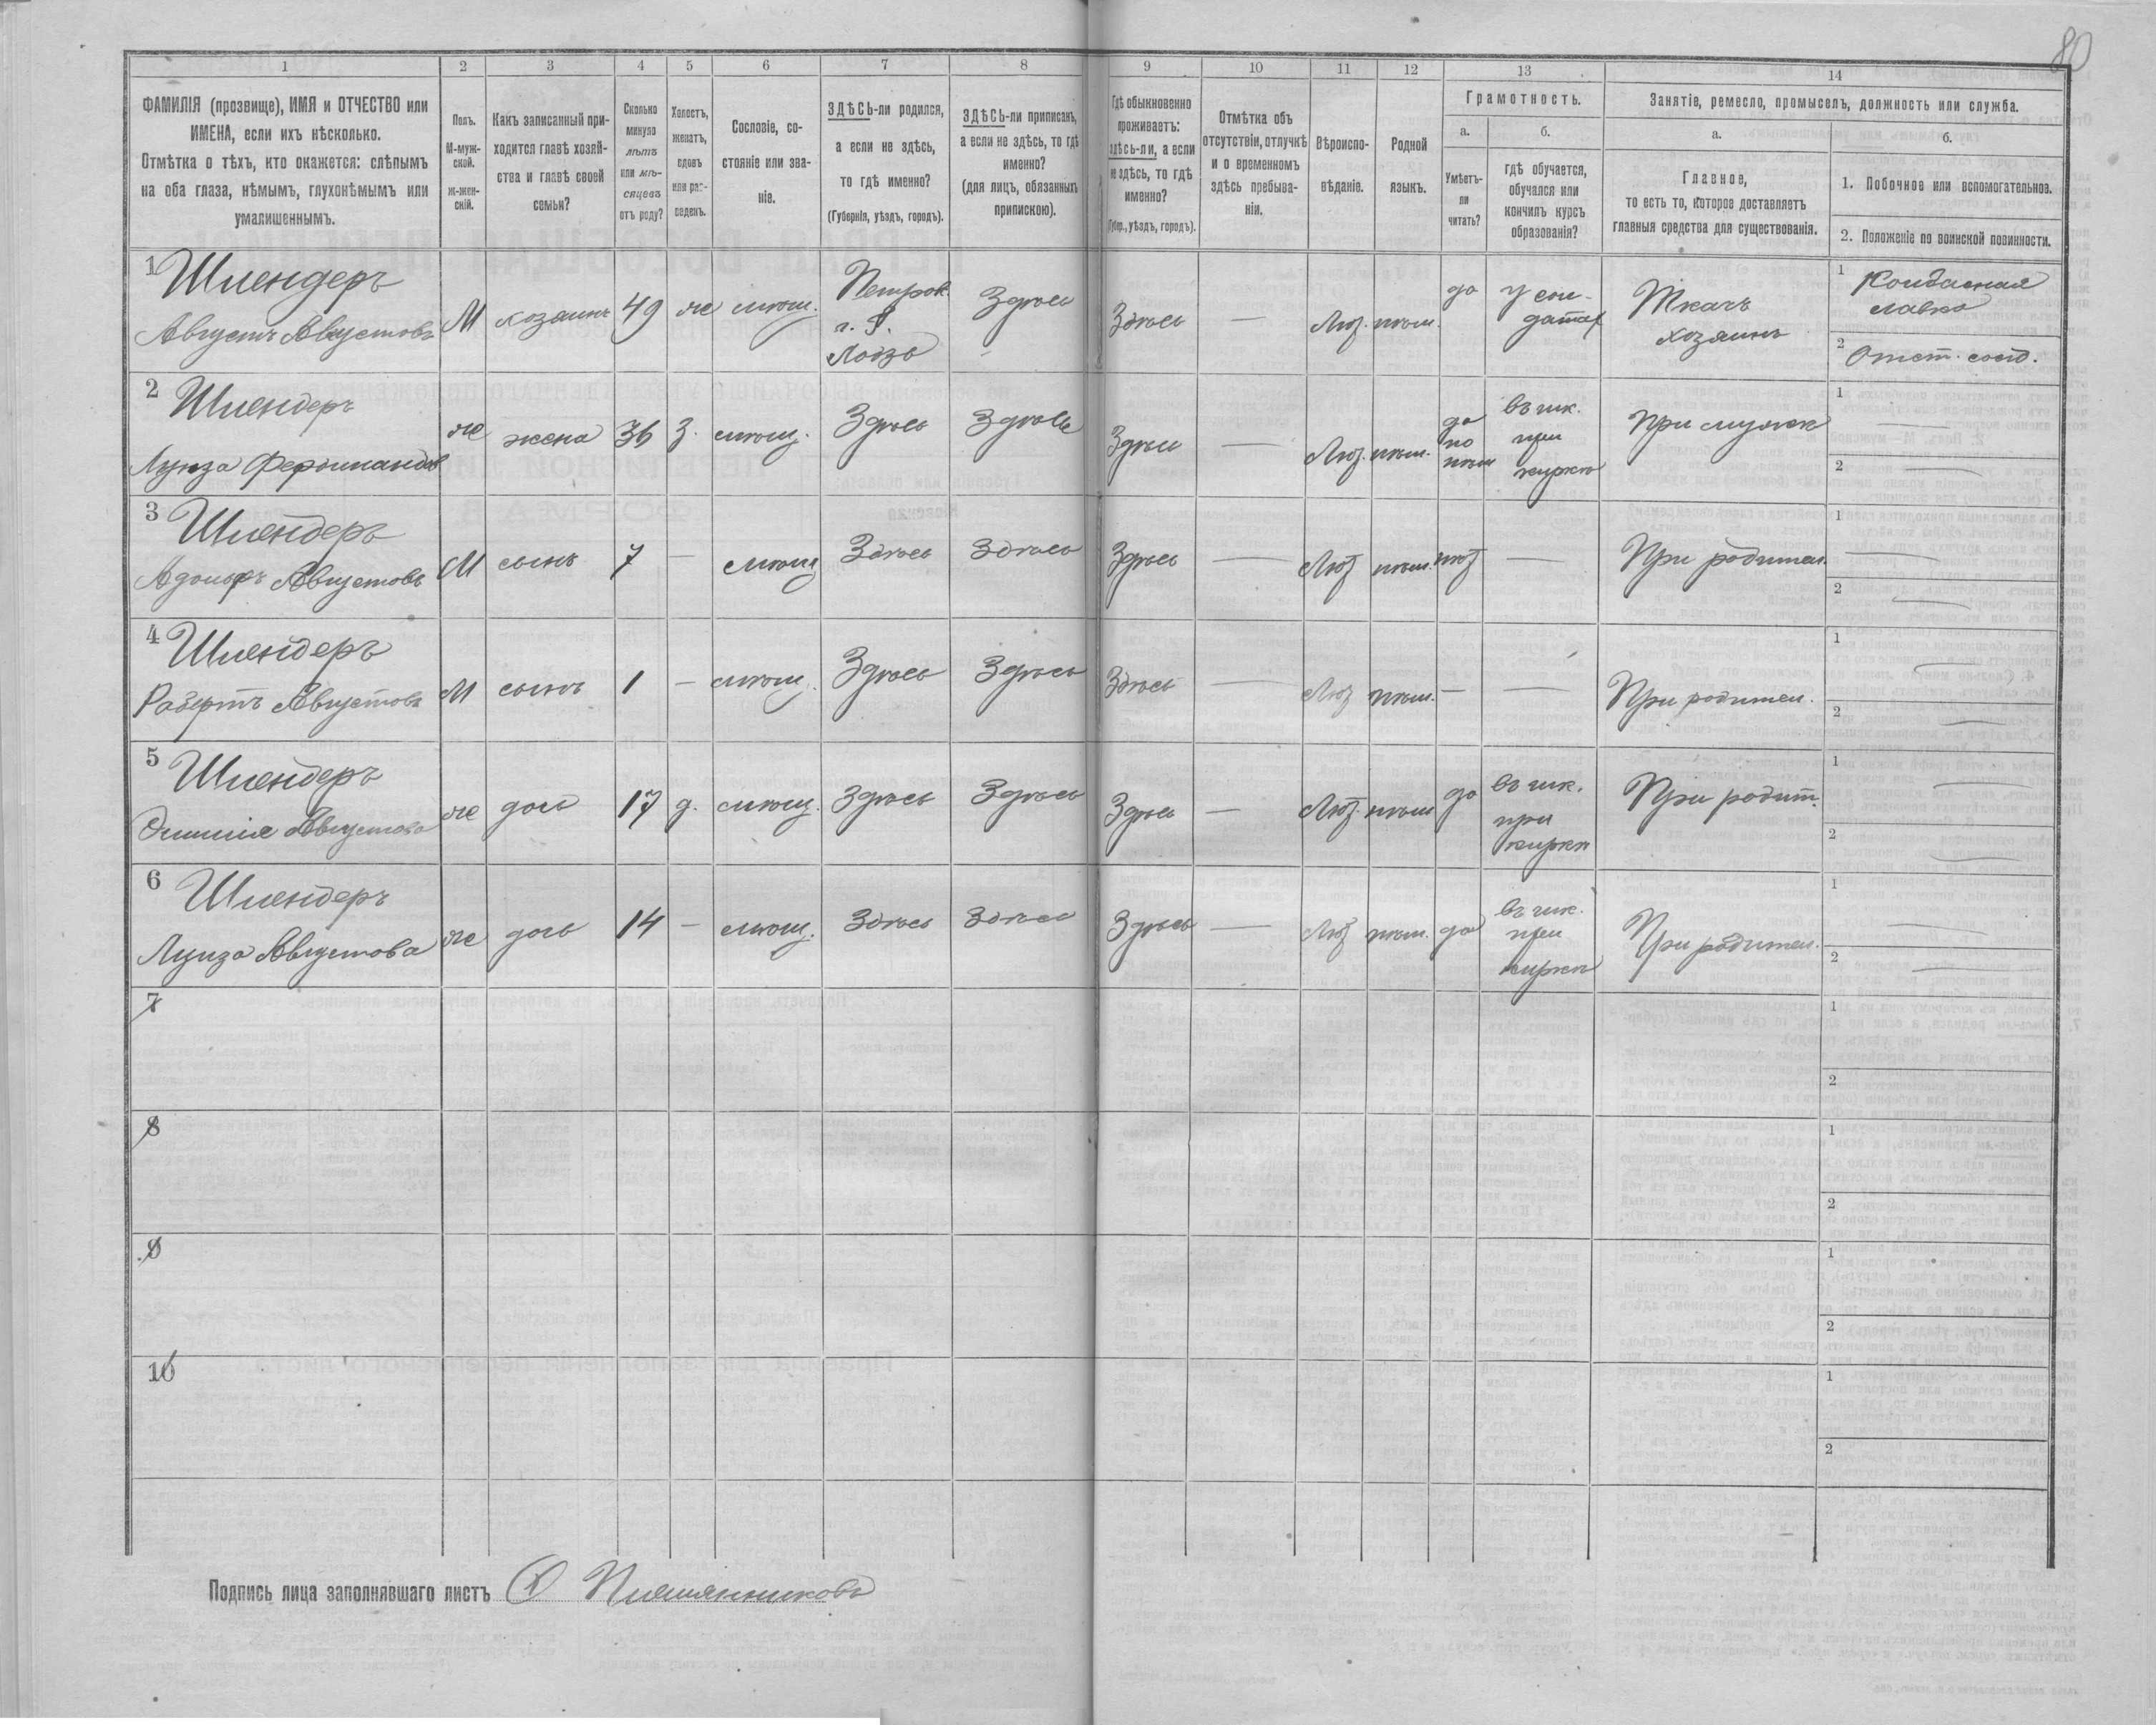 80
1 2 3 4 5 6 7 8 9 10 11 12 13 14
ФАМИЛІЯ (прозвище), ИМЯ и ОТЧЕСТВО или
ИМЕНА, если ихъ нѣсколько.
Отмѣтка о тѣхъ, кто окажется: слѣпымъ
на оба глаза, нѣмымъ, глухонѣмымъ или
умалишеннымъ.
Полъ.
М-муж-
ской.
ж-жен-
скій.
Какъ записанный при-
ходится главѣ хозяй-
ства и главѣ своей
семьи?
Сколько
минуло
лѣтъ
или мѣ-
сяцевъ
отъ роду?
Холостъ,
женатъ,
вдовъ
или раз-
веденъ.
Сословіе, со-
стояніе или зва-
ніе.
ЗДѢСЬ-ли родился,
а если не здѣсь,
то гдѣ именно?
(Губернія, уѣздъ, городъ).
ЗДѢСЬ-ли приписанъ,
а если не здѣсь, то гдѣ
именно?
(для лицъ, обязанныхъ
припискою).
Гдѣ обыкновенно
проживаетъ:
здѣсь-ли, а если
не здѣсь, то гдѣ
именно?
(Губер., уѣздъ, городъ).
Отмѣтка объ
отсутствіи, отлучкѣ
и о временномъ
здѣсь пребыва-
ніи.
Вѣроиспо-
вѣданіе.
Родной
языкъ.
Грамотность.
а.
Умѣетъ-
ли
читать?
б.
гдѣ обучается,
обучался или
кончилъ курсъ
образованія?
Занятіе, ремесло, промыселъ, должность или служба.
а.
Главное,
то есть то, которое доставляетъ
главныя средства для существованія.
б.
1. Побочное или вспомогательное.
2. Положеніе по воинской повинности.
1 Шлендеръ
Августъ Августовъ
М хозяинъ 49 же
Петров.
г.
Лодзь
Здѣсь
Здѣсь — Лют. нѣм. да
Ткачъ
хозяинъ
1
лавка
2
2 Шлендеръ
Луиза Фердинандов
же жена 36 З. Здѣсь Здѣсь
Здѣсь — Лют. нѣм.
да
по
нѣм
въ шк.
при
киркѣ
При мужѣ
1 —
2 —
3 Шлендеръ
Адольфъ Августовъ
М сынъ 7 — Здѣсь Здѣсь
Здѣсь — Лют нѣм. нѣт — При родител.
1 —
2 —
4 Шлендеръ
Робертъ Августовъ
М сынъ 1 — Здѣсь Здѣсь
Здѣсь — Лют нѣм. — — При родител.
1 —
2 —
5 Шлендеръ
Эмилія Августова
же дочь 17 д. Здѣсь Здѣсь
Здѣсь — Лют. нѣм да
въ шк.
при
киркѣ
При родит.
1 —
2 —
6 Шлендеръ
Луиза Августова
же дочь 14 — Здѣсь Здѣсь
Здѣсь — Лют нѣм. да
въ шк.
при
киркѣ
При родител.
1 —
2 —
7
1
2
8
1
2
9
1
2
10
1
2
Подпись лица заполнявшаго листъ Племянниковъ